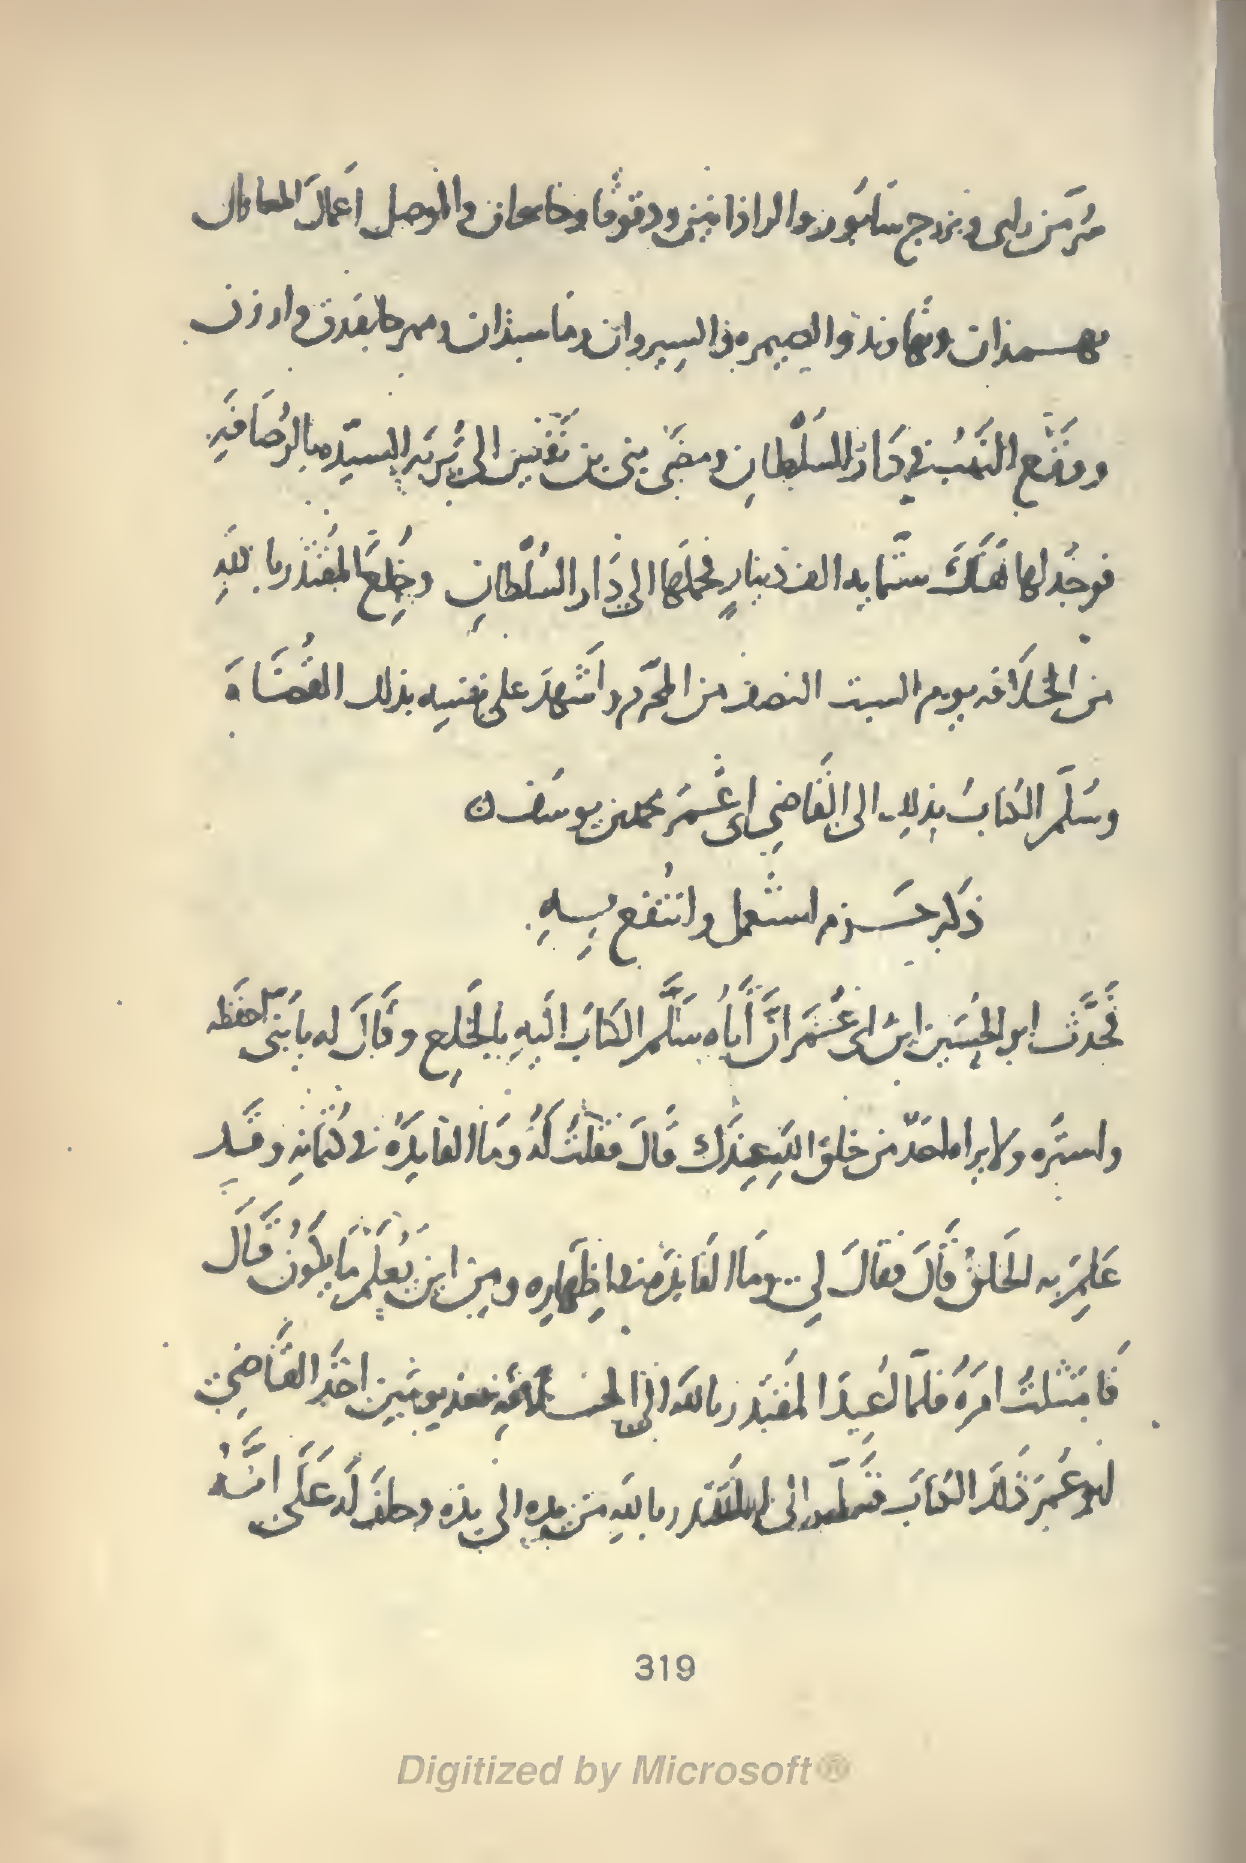 سُرّ مَن راى وبزرج سَابُور والراذانين ودقوقا وخانيجان والموصل اعمال المعاون
بهمذان ونهاوند والصيمره والسيروان وماسبذان ومهرجانقذق وارزن
ووقع النهبُ في دَار السُلْطانِ ومضَى بنى بن نَفيس الى تُربَه السيّده بالرُصَافَهِ
فوجدلها هُنَاكَ ستّمايه الف دينارٍ فحملَها الى دَار السُلْطانِ وخُلعَ المُقتدر باللهِ
من الخلَافه يوم السبت النصف من المحرّم واَشهدَ على نفسه بذلك القُضَاهَ
وسُلّم الكتابُ بذلك الى القَاضِي ابى عُمَرَ محمد بن يوسَف ن
ذكر حَزم استُعمل وانتُفع بِهِ
فحَدَّث ابو الحُسَين ابن ابى عُمَرَ انَّ أَباه سَلَّم الكتَابَ اليهِ بالخَلعِ وقَالَ له يا بُنى احفظه
واستره ولا يراه احَدٌ من خلق اللهِ عِندَك قَالَ فقلتُ لَهُ ومَا الفايدَهُ فى كتمَانهِ وقَد
عَلِمَ به الخَلقُ قَالَ فقالَ لِي ومَا الفَايدَه فى اِظهَارِه ومِن اين يُعلَم مَا يكونُ قَالَ
فَامتثلتُ امرَهُ فلمّا اُعيدَ المُقتَدر بالله الى الخلافه بعد يومَين اخَذَ القَاضِي
ابو عُمَرَ ذَلكَ الكتَابَ فسَلّمه الى المقتدر باللهِ مَن يدِه الى يدِه وحلفَ لَه عَلَى انَّهُ
319
Digitized by Microsoft®